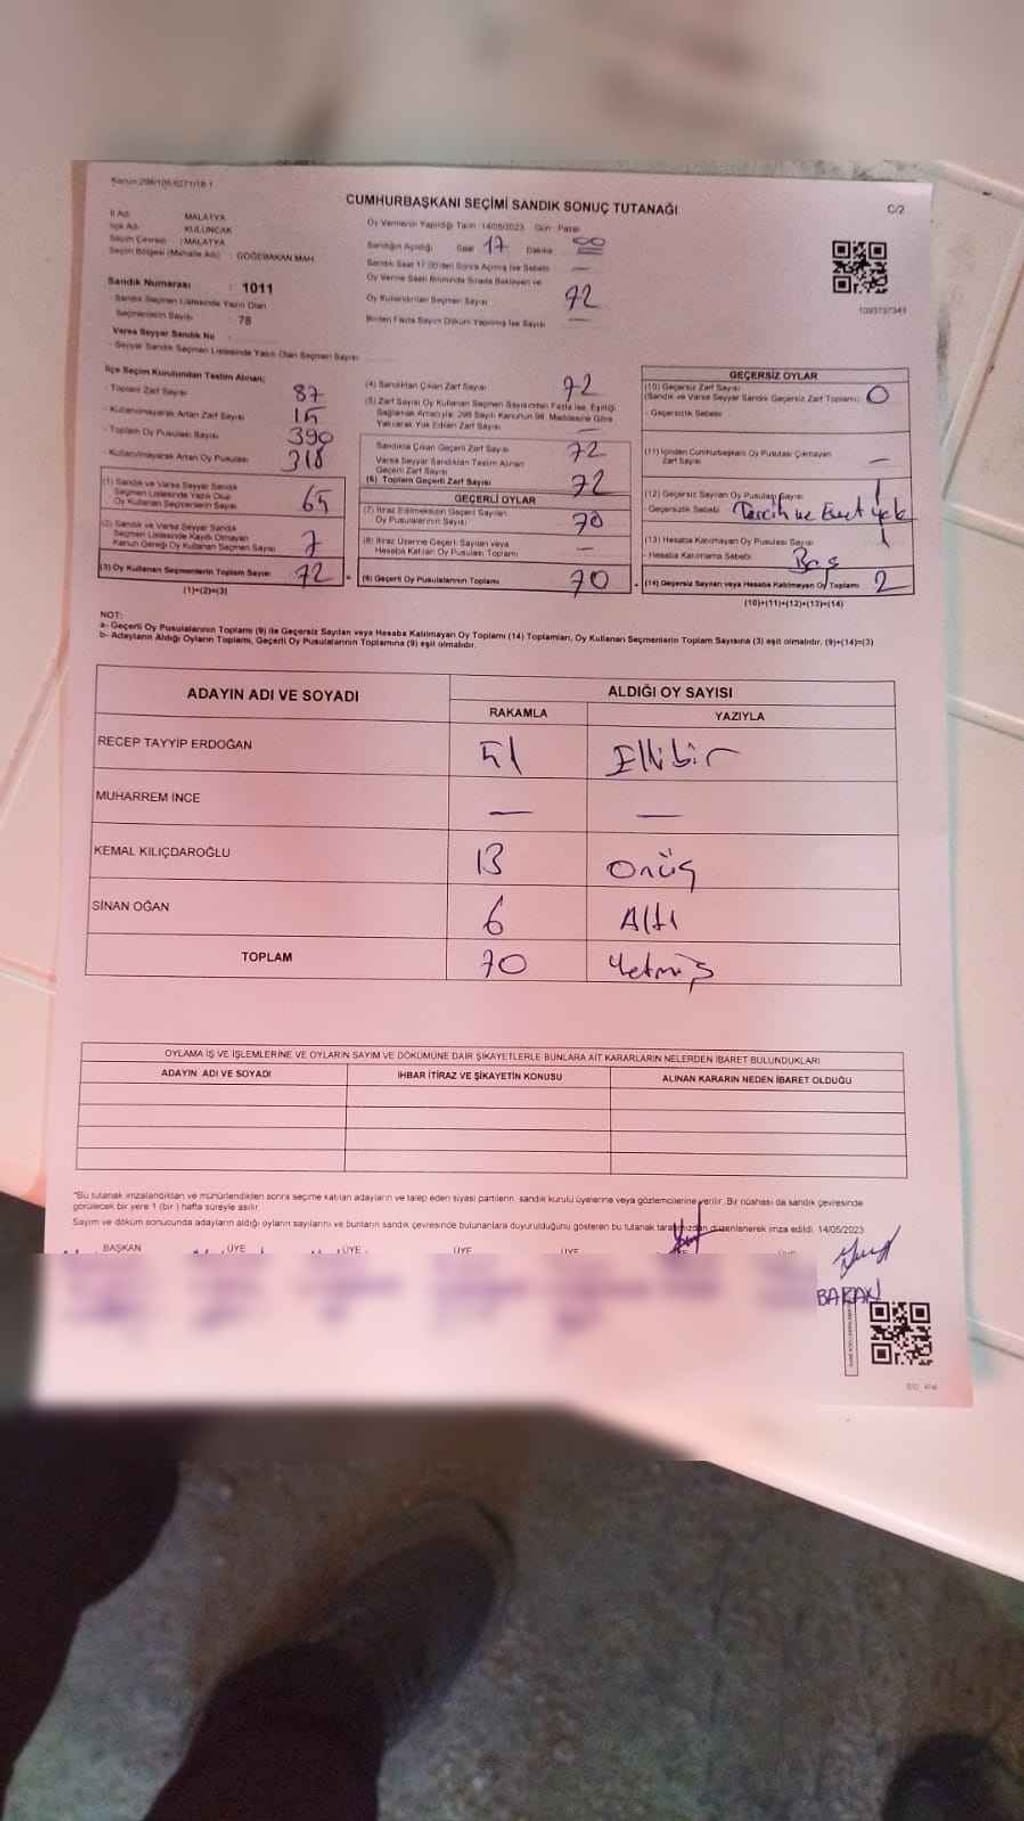 CUMHURBAŞKANI SEÇİMİ SANDIK SONUÇ TUTANAĞI
C/2
İl Adı MALATYA
İlçe Adı KULUNCAK
Seçim Çevresi : MALATYA
Seçim Bölgesi (Mahalle Adı) GÖĞEBAKAN MAH.
Sandık Numarası : 1011
Sandık Seçmen Listesinde Yazılı Olan
Seçmenlerin Sayısı 78
Varsa Seyyar Sandık No
Seyyar Sandık Seçmen Listesinde Yazılı Olan Seçmen Sayısı
Oy Vermenin Yapıldığı Tarih 14/05/2023 Gün : Pazar
Sandığın Açıldığı Saat 17 Dakika 00
Oy Kullandırılan Seçmen Sayısı 72
Birden Fazla Sayım Döküm Yapılmış İse Sayısı —
1093797341
İlçe Seçim Kurulundan Teslim Alınan;
Toplam Zarf Sayısı 87
Kullanılmayarak Artan Zarf Sayısı 15
Toplam Oy Pusulası Sayısı 390
Kullanılmayarak Artan Oy Pusulası 318
(1) Sandık ve Varsa Seyyar Sandık
Seçmen Listesinde Yazılı Olup
Oy Kullanan Seçmenlerin Sayısı 65
(2) Sandık ve Varsa Seyyar Sandık
Seçmen Listesinde Kayıtlı Olmayan
Kanun Gereği Oy Kullanan Seçmen Sayısı 7
(3) Oy Kullanan Seçmenlerin Toplam Sayısı 72
(1)+(2)=(3)
(4) Sandıktan Çıkan Zarf Sayısı 72
(5) Zarf Sayısı Oy Kullanan Seçmen Sayısından Fazla İse, Eşitliği
Sağlamak Amacıyla, 298 Sayılı Kanunun 98. Maddesine Göre
Yakılarak Yok Edilen Zarf Sayısı —
Sandıkta Çıkan Geçerli Zarf Sayısı 72
Varsa Seyyar Sandıktan Teslim Alınan
Geçerli Zarf Sayısı
(6) Toplam Geçerli Zarf Sayısı 72
GEÇERLİ OYLAR
(7) İtiraz Edilmeksizin Geçerli Sayılan
Oy Pusulalarının Sayısı 70
(8) İtiraz Üzerine Geçerli Sayılan veya
Hesaba Katılan Oy Pusulası Toplamı —
(9) Geçerli Oy Pusulalarının Toplamı 70
GEÇERSİZ OYLAR
(10) Geçersiz Zarf Sayısı
(Sandık ve Varsa Seyyar Sandık Geçersiz Zarf Toplamı) 0
- Geçersizlik Sebebi
(11) İçinden Cumhurbaşkanı Oy Pusulası Çıkmayan
Zarf Sayısı —
(12) Geçersiz Sayılan Oy Pusulası Sayısı 1
- Geçersizlik Sebebi Tercih ve Evet yok
(13) Hesaba Katılmayan Oy Pusulası Sayısı 1
- Hesaba Katılmama Sebebi Boş
(14) Geçersiz Sayılan veya Hesaba Katılmayan Oy Toplamı 2
(10)+(11)+(12)+(13)=(14)
NOT:
a- Geçerli Oy Pusulalarının Toplamı (9) ile Geçersiz Sayılan veya Hesaba Katılmayan Oy Toplamı (14) Toplamları, Oy Kullanan Seçmenlerin Toplam Sayısına (3) eşit olmalıdır. (9)+(14)=(3)
b- Adayların Aldığı Oyların Toplamı, Geçerli Oy Pusulalarının Toplamına (9) eşit olmalıdır.
ADAYIN ADI VE SOYADI
ALDIĞI OY SAYISI
RAKAMLA YAZIYLA
RECEP TAYYİP ERDOĞAN 51 Ellibir
MUHARREM İNCE — —
KEMAL KILIÇDAROĞLU 13 Onüç
SİNAN OĞAN 6 Altı
TOPLAM 70 Yetmiş
OYLAMA İŞ VE İŞLEMLERİNE VE OYLARIN SAYIM VE DÖKÜMÜNE DAİR ŞİKAYETLERLE BUNLARA AİT KARARLARIN NELERDEN İBARET BULUNDUKLARI
ADAYIN ADI VE SOYADI İHBAR İTİRAZ VE ŞİKAYETİN KONUSU ALINAN KARARIN NEDEN İBARET OLDUĞU
"Bu tutanak imzalandıktan ve mühürlendikten sonra seçime katılan adayların ve talep eden siyasi partilerin, sandık kurulu üyelerine veya gözlemcilerine verilir. Bir nüshası da sandık çevresinde
görülecek bir yere 1 (bir) hafta süreyle asılır.
Sayım ve döküm sonucunda adayların aldığı oyların sayılarını ve bunların sandık çevresinde bulunanlara duyurulduğunu gösteren bu tutanak tarafımızdan düzenlenerek imza edildi. 14/05/2023
BAŞKAN ÜYE ÜYE ÜYE ÜYE